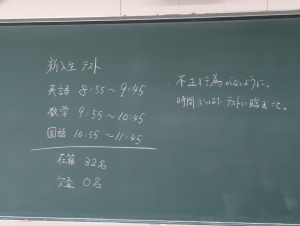 新入生 テスト
英語 8:55〜9:45
数学 9:55〜10:45
国語 10:55〜11:45
在籍 32名
欠査 0名
不正行為がないように。
時間いっぱい テストに臨むこと。